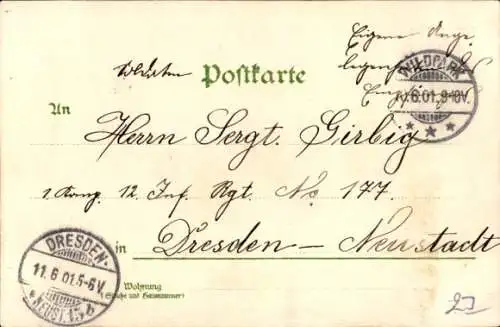 Eigene Ange-
legenheit des
Postkarte
Empfängers
WILDPARK
11.6.01.8-9V.
An
Herrn Sergt. Girbig
1. Komp. 12. Inf. Rgt. No 177.
in Dresden - Neustadt
DRESDEN-
11.6.01.5-6V
NEUST. 15 b
Wohnung
(Straße und Hausnummer)